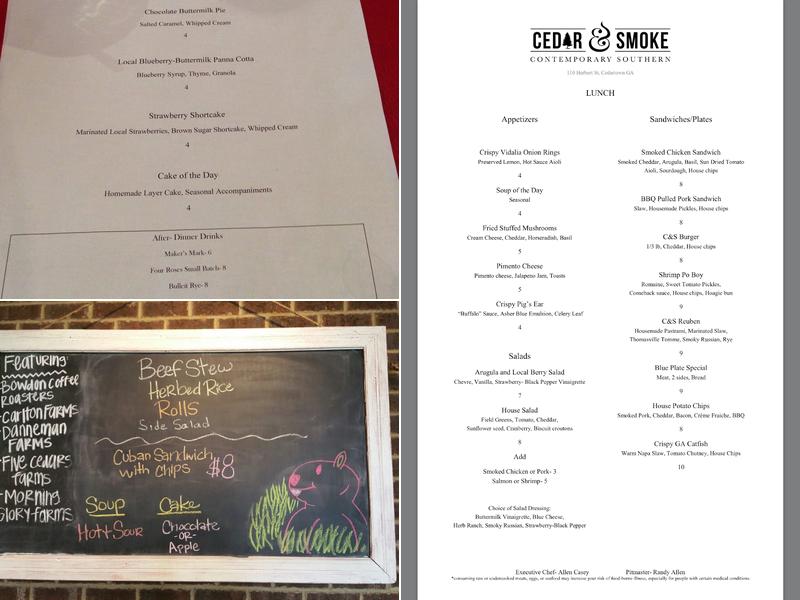 Chocolate Buttermilk Pie
Salted Caramel, Whipped Cream
4
Local Blueberry-Buttermilk Panna Cotta
Blueberry Syrup, Thyme, Granola
4
Strawberry Shortcake
Marinated Local Strawberries, Brown Sugar Shortcake, Whipped Cream
4
Cake of the Day
Homemade Layer Cake, Seasonal Accompaniments
4
After- Dinner Drinks
Maker's Mark- 6
Four Roses Small Batch- 8
Bulleit Rye- 8
Featuring
Bowdon Coffee
Roasters
-Carlton Farms
-Danneman
Farms
-Five Cedars
Farms
-Morning
Glory-farms
Beef Stew
Herbed Rice
Rolls
Side Salad
Cuban Sandwich
with chips $8
Soup
Hot & Sour
Cake
Chocolate
-or-
Apple
CEDAR & SMOKE
CONTEMPORARY SOUTHERN
110 Herbert St, Cedartown GA
LUNCH
Appetizers
Crispy Vidalia Onion Rings
Preserved Lemon, Hot Sauce Aioli
4
Soup of the Day
Seasonal
4
Fried Stuffed Mushrooms
Cream Cheese, Cheddar, Horseradish, Basil
5
Pimento Cheese
Pimento cheese, Jalapeno Jam, Toasts
5
Crispy Pig's Ear
"Buffalo" Sauce, Asher Blue Emulsion, Celery Leaf
4
Salads
Arugula and Local Berry Salad
Chevre, Vanilla, Strawberry- Black Pepper Vinaigrette
7
House Salad
Field Greens, Tomato, Cheddar,
Sunflower seed, Cranberry, Biscuit croutons
8
Add
Smoked Chicken or Pork- 3
Salmon or Shrimp- 5
Choice of Salad Dressing:
Buttermilk Vinaigrette, Blue Cheese,
Herb Ranch, Smoky Russian, Strawberry-Black Pepper
Sandwiches/Plates
Smoked Chicken Sandwich
Smoked Cheddar, Arugula, Basil, Sun Dried Tomato
Aioli, Sourdough, House chips
8
BBQ Pulled Pork Sandwich
Slaw, Housemade Pickles, House chips
8
C&S Burger
1/3 lb, Cheddar, House chips
8
Shrimp Po Boy
Romaine, Sweet Tomato Pickles,
Comeback sauce, House chips, Hoagie bun
9
C&S Reuben
Housemade Pastrami, Marinated Slaw,
Thomasville Tomme, Smoky Russian, Rye
9
Blue Plate Special
Meat, 2 sides, Bread
9
House Potato Chips
Smoked Pork, Cheddar, Bacon, Crème Fraiche, BBQ
8
Crispy GA Catfish
Warm Napa Slaw, Tomato Chutney, House Chips
10
Executive Chef- Allen Casey Pitmaster- Randy Allen
*consuming raw or undercooked meats, eggs, or seafood may increase your risk of food-borne illness, especially for people with certain medical conditions.